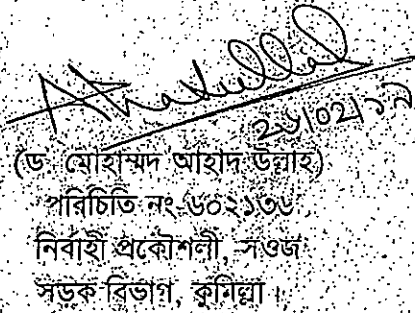 ২৬/০২/১৯
(ড. মোহাম্মদ আহাদ উল্লাহ)
পরিচিতি নং-৬০২১৩৬
নির্বাহী প্রকৌশলী, সওজ
সড়ক বিভাগ, কুমিল্লা।